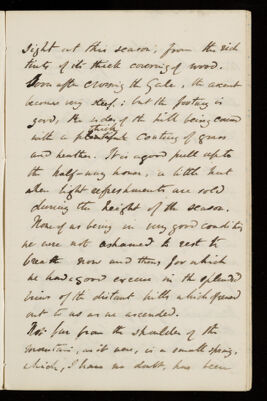 sight at this season, from the rich
tints of its thick covering of wood.
Soon after crossing the Gate, the ascent
becomes very steep: but the footing is
good, the sides of the hill being covered
with a thick coating of grass
and heather. It is a good pull up to
the half-way house, a little hut
where light refreshments are sold
during the height of the season.
None of us being in very good condition
we were not ashamed to rest to
breath now and then, for which
we had a good excuse in the splendid
views of the distant hills which opened
out to us as we ascended.
Not far from the shoulder of the
mountain, as it were, is a small spring,
which, I have no doubt, has been